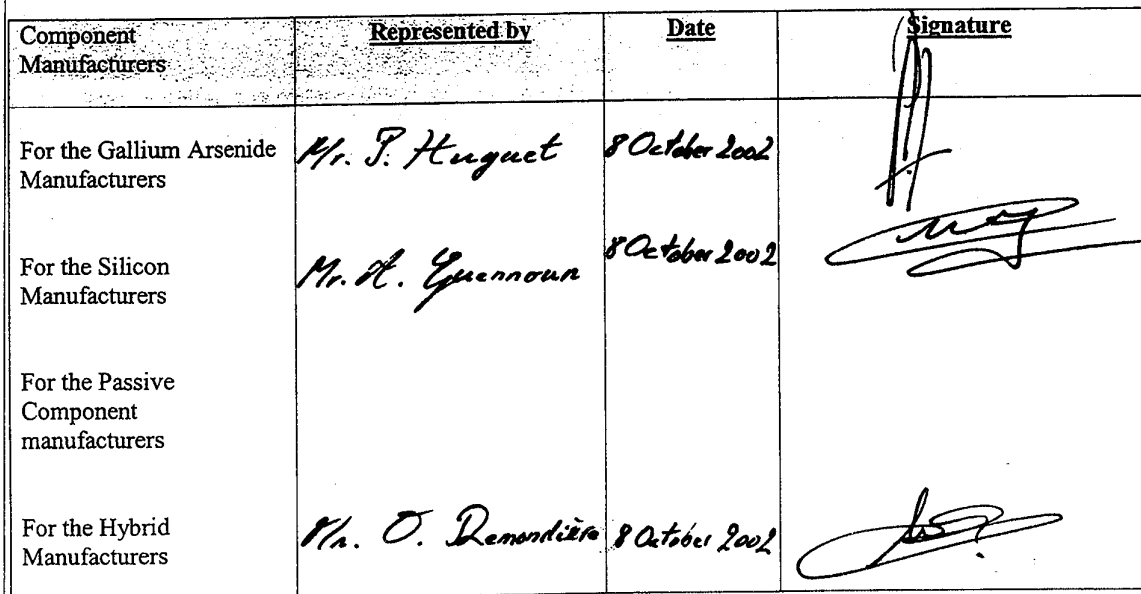 Component Manufacturers Represented by Date Signature
For the Gallium Arsenide Manufacturers Mr. P. Huguet 8 October 2002
For the Silicon Manufacturers Mr. A. Guennoun 8 October 2002
For the Passive Component manufacturers
For the Hybrid Manufacturers Mr. O. Demondière 8 October 2002